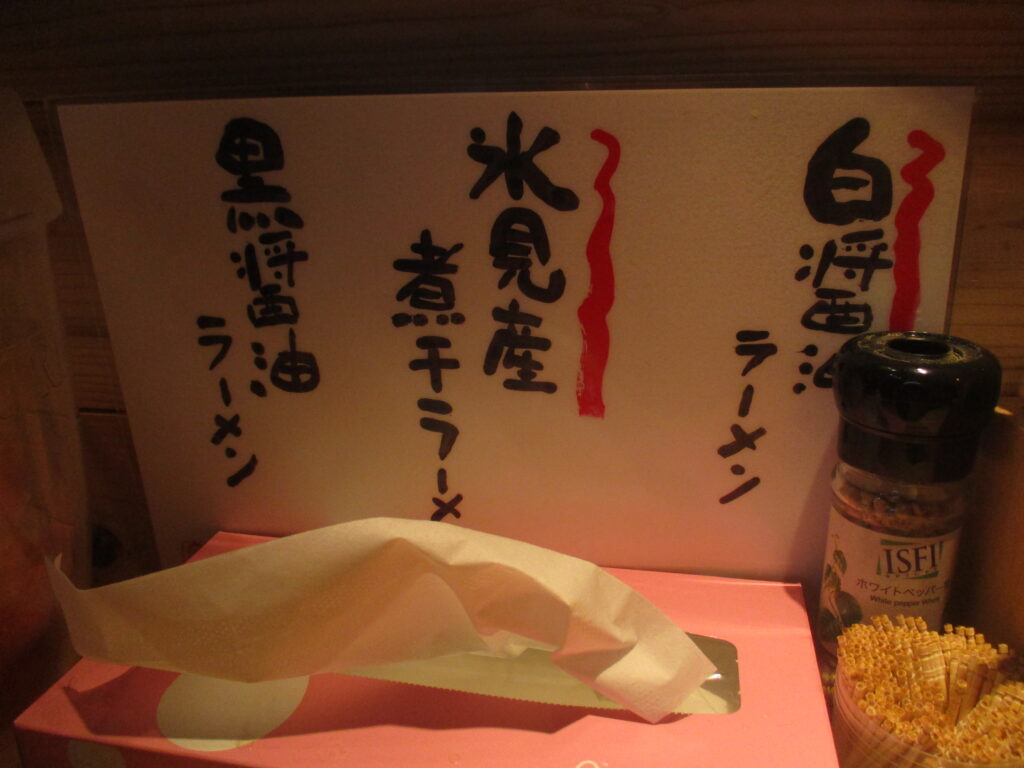 白醤油
ラーメン
氷見産
煮干ラーメ
黒醤油
ラーメン
ISFI
ホワイトペッパー
White pepper Whole